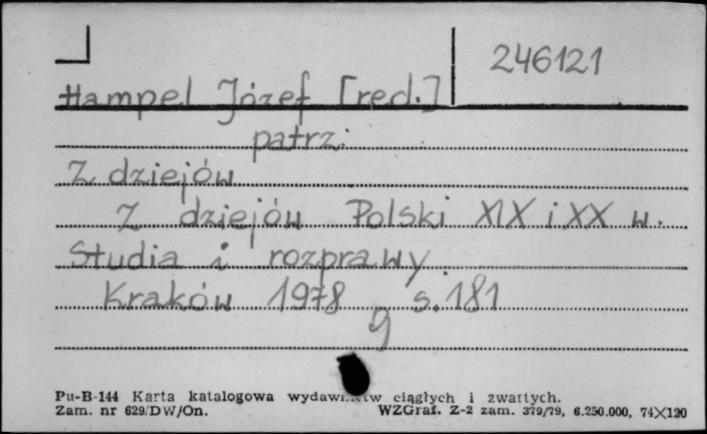 246121
Hampel Józef [red.]
patrz:
Z dziejów
Z dziejów Polski XIX i XX w.
Studia i rozprawy.
Kraków 1978 s. 181
g
Pu-B-144 Karta katalogowa ciągłych i zwartych.
Zam. nr 629/DW/On. WZGraf. Z-2 zam. 379/79, 6.250.000, 74×120